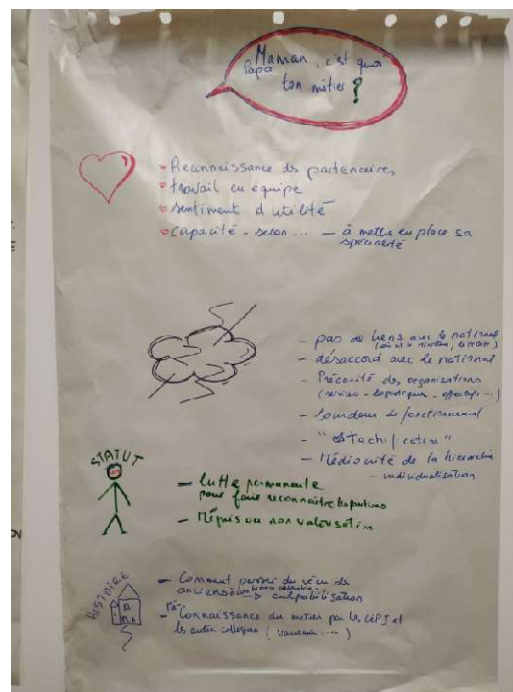 Maman, c'est quoi
Papa
ton métier ?
Reconnaissance des partenaires
travail en équipe
sentiment d'utilité
capacité - selon ... - à mettre en place sa
spécialité
- pas de liens avec le national
- désaccord avec le national
- Précarité des organisations
(services - logistiques - effectifs ...)
- Lourdeur de fonctionnement
- "
- Médiocrité de la hiérarchie
- individualisation
STATUT
- lutte permanente
pour faire reconnaître
- Mépris ou non valorisation
HISTOIRE
- Comment passer du vécu des
anciens culpabilisation
- Connaissance des métiers par les CEPJ et
les autres collègues (